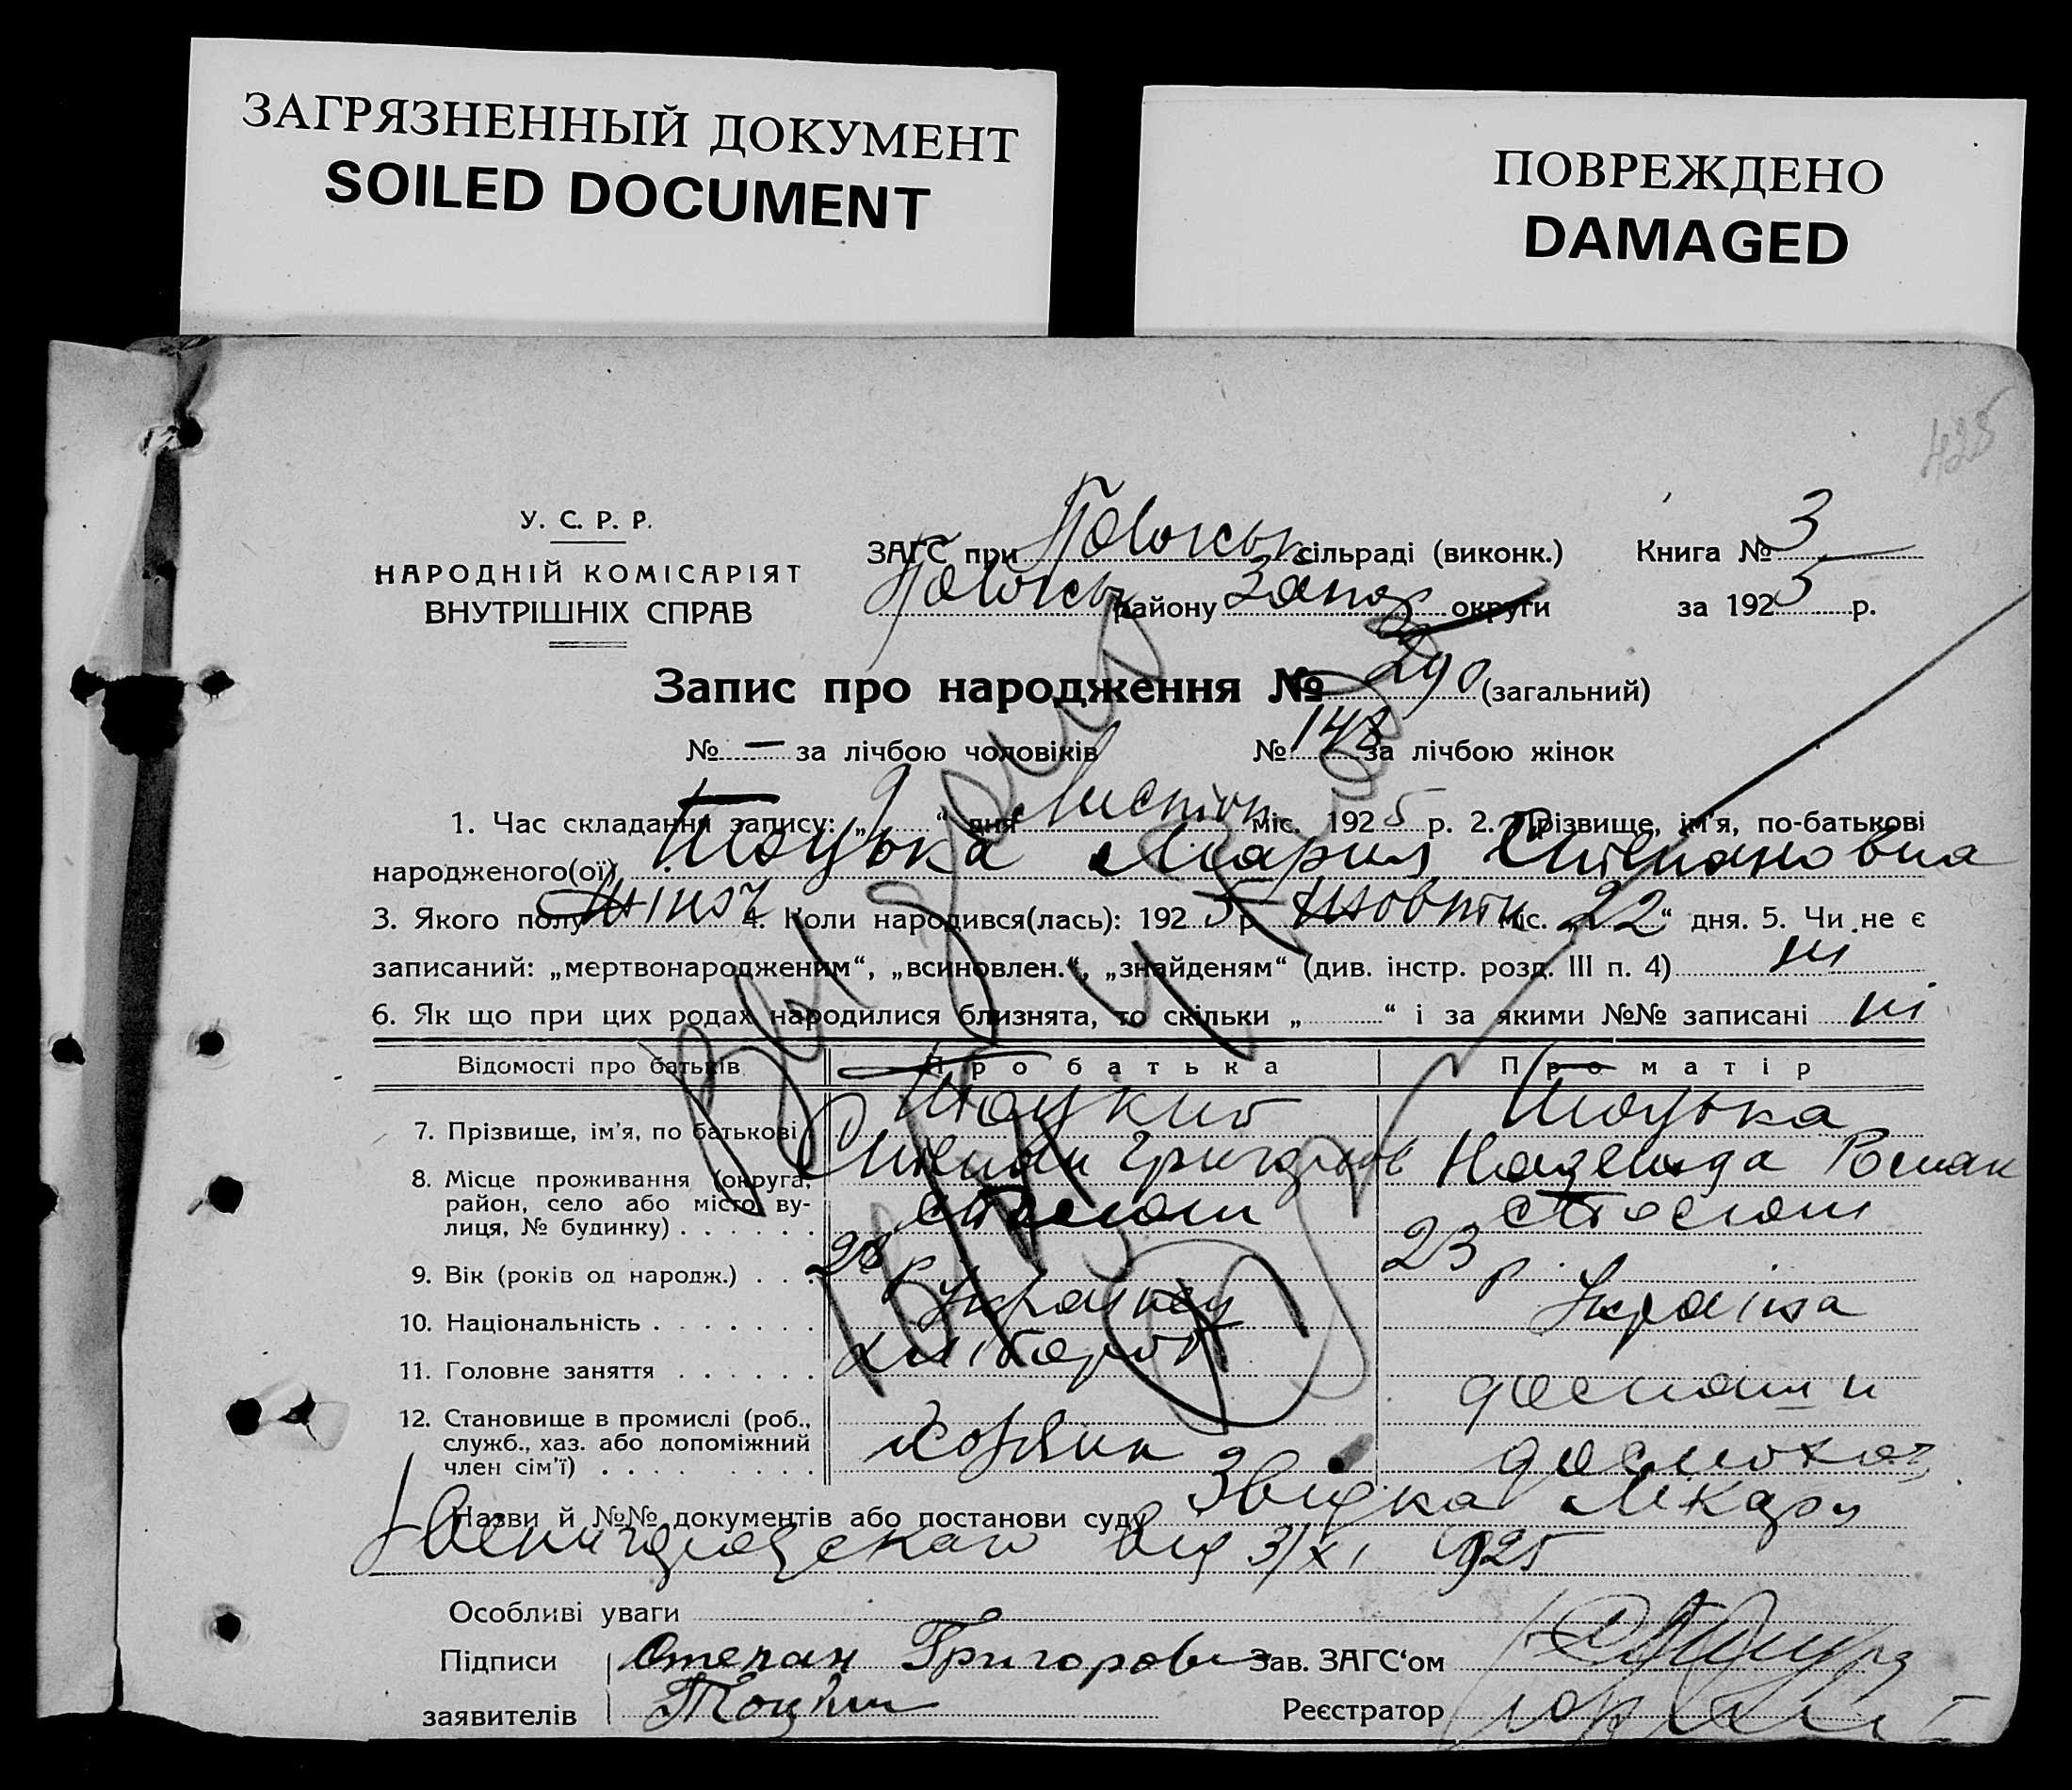 ЗАГРЯЗНЕННЫЙ ДОКУМЕНТ
SOILED DOCUMENT
ПОВРЕЖДЕНО
DAMAGED
425
У. С. Р. Р.
НАРОДНІЙ КОМІСАРІЯТ
ВНУТРІШНІХ СПРАВ
ЗАГС при сільраді (виконк.) Книга № 3
району Запор округи за 1925 р.
Запис про народження № 290 (загальний)
№ — за лічбою чоловіків № 148 за лічбою жінок
1. Час складання запису: „9“ дня Листоп міс. 1925 р. 2. Прізвище, ім'я, по-батькові
народженого(ої) Тоцька Мария Степановна
3. Якого полу жіноч 4. Коли народився(лась): 1925 р. жовтн міс. „22“ дня. 5. Чи не є
записаний: „мертвонародженим“, „всиновлен.“, „знайденям“ (див. інстр. розд. III п. 4) ні
6. Як що при цих родах народилися близнята, то скільки „ “ і за якими №№ записані ні
Відомості про батьків Про батька Про матір
7. Прізвище, ім'я, по батькові Тоцкий Тоцька
Степан Григоров Надежда Роман
8. Місце проживання (округа, район, село або місто, вулиця, № будинку)
9. Вік (років од народж.) 28 р 23 р.
10. Національність Украінец Украінка
11. Головне заняття хлібороб
12. Становище в промислі (роб., служб., хаз. або допоміжний член сім'ї) хозяин
Назви й №№ документів або постанови суду Звідка Лікаря
від 3/XI 1925
Особливі уваги
Підписи Степан Григорови Зав. ЗАГС'ом
заявителів Тоцкий Реєстратор